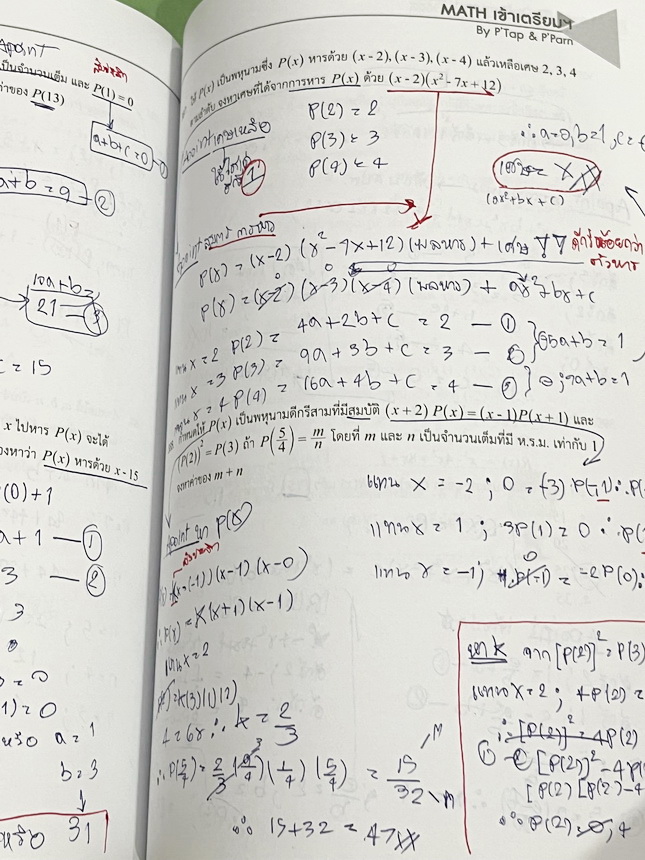 MATH เข้าเตรียมฯ
By P'Tap & P'Parn
ให้ P(x) เป็นพหุนามซึ่ง P(x) หารด้วย (x-2),(x-3),(x-4) แล้วเหลือเศษ 2, 3, 4
ตามลำดับ จงหาเศษที่ได้จากการหาร P(x) ด้วย (x-2)(x²-7x+12)
P(2) = 2
P(3) = 3
P(4) = 4
∴ a=0, b=1, c=
(ax²+bx+c)
P(x) = (x-2)(x²-7x+12)(ผลหาร) + เศษ
ดีกรีน้อยกว่า
ตัวหาร
P(x) = (x-2)(x-3)(x-4)(ผลหาร) + ax²+bx+c
แทน x=2 P(2) = 4a+2b+c = 2 — ①
แทน x=3 P(3) = 9a+3b+c = 3 — ②
แทน x=4 P(4) = 16a+4b+c = 4 — ③
5a+b=1
7a+b=1
กำหนดให้ P(x) เป็นพหุนามดีกรีสามที่มีสมบัติ (x+2) P(x) = (x-1)P(x+1) และ
(P(2))² = P(3) ถ้า P(5/4) = m/n โดยที่ m และ n เป็นจำนวนเต็มที่มี ห.ร.ม. เท่ากับ 1
จงหาค่าของ m+n
แทน x = -2 ; 0 = (-3) P(-1) ∴ P(
แทน x = 1 ; 3P(1) = 0 ∴ P(
แทน x = -1 ; 1·P(-1) = -2P(0) ∴
หา P(x)
(x-(-1))(x-1)(x-0)
∴ P(x) = K(x+1)(x-1)
แทน x = 2
=K(3)(1)(2)
4 = 6K ∴ K = 2/3
∴ P(5/4) = 2/3 (9/4)(1/4)(5/4) = 15/32
∴ 15+32 = 47
หา K จาก [P(2)]² = P(3)
แทน x = 2 ; 4P(2) =
∴ [P(2)]² = 4P(2)
[P(2)]² - 4P(
[P(2)][P(2)-4
∴ P(2) = 0, 4
เป็นจำนวนเต็ม และ P(1) = 0
ค่าของ P(13)
a+b+c=0
a+b = 9 — ②
10a+b=
21 — ③
c = 15
x ไปหาร P(x) จะได้
จงหาว่า P(x) หารด้วย x-15
(0)+1
a+1 — ①
3 — ②
1) = 0
หรือ a = 1
b = 3
หรือ 31